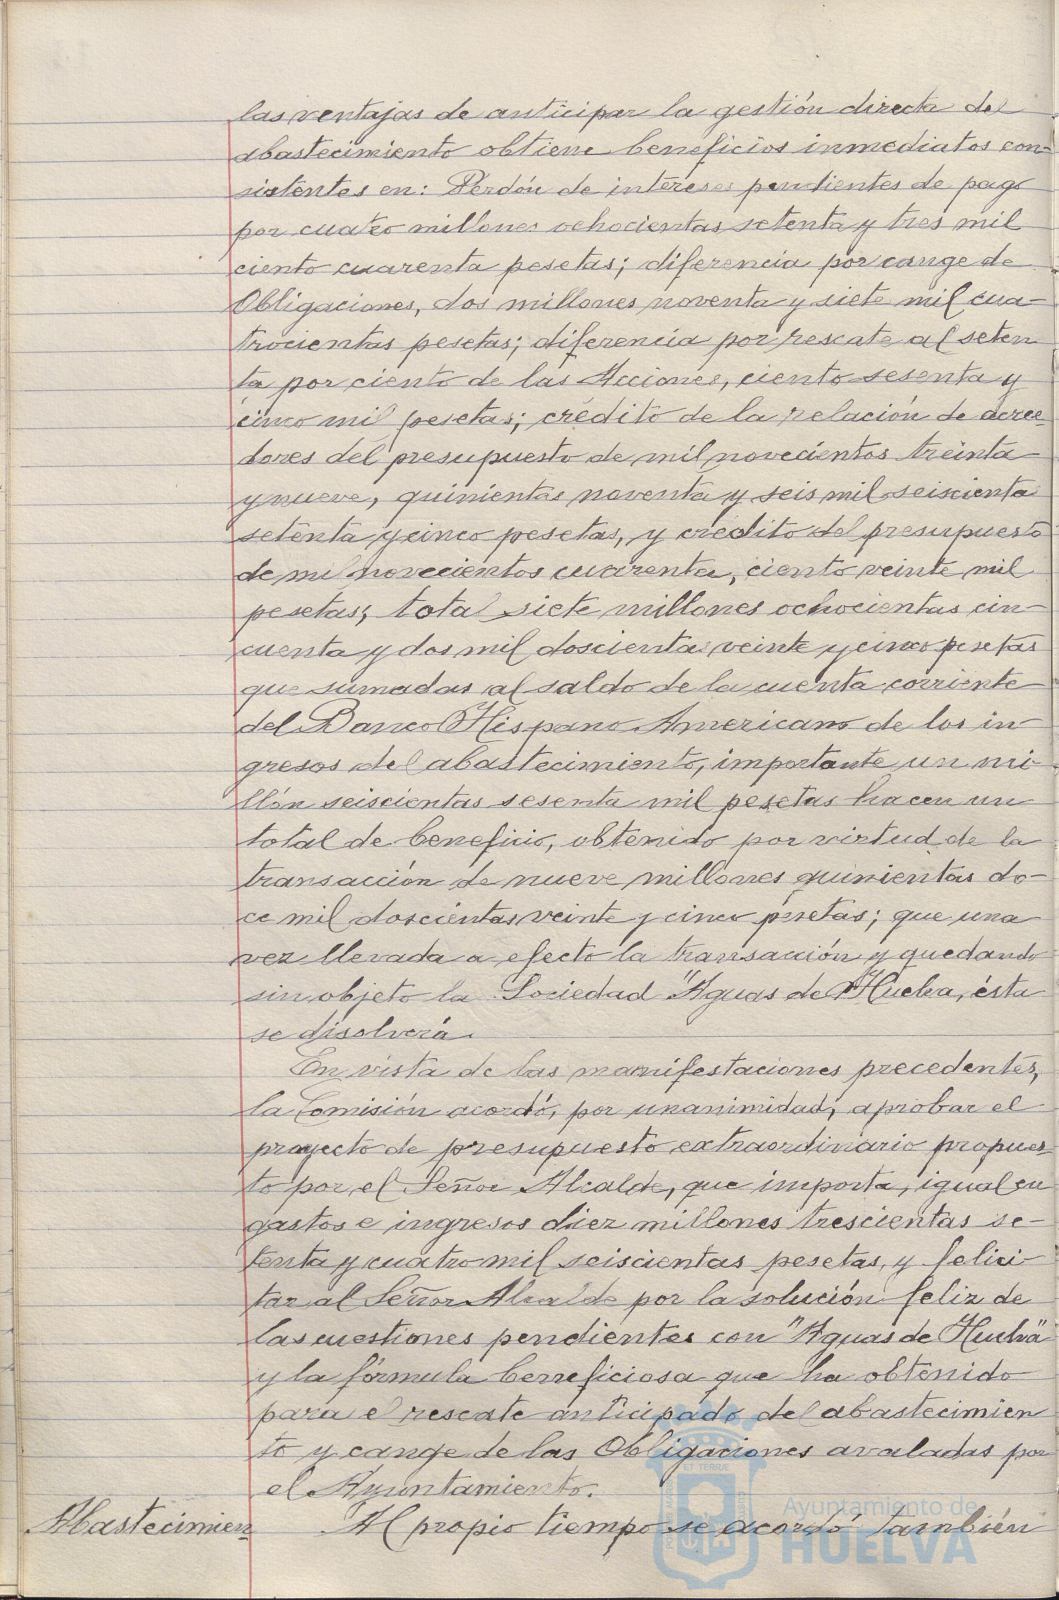 las ventajas de anticipar la gestión directa del
abastecimiento obtiene beneficios inmediatos con-
sistentes en: Perdón de intereses pendientes de pago
por cuatro millones ochocientas setenta y tres mil
ciento cuarenta pesetas; diferencia por cange de
Obligaciones, dos millones noventa y siete mil cua-
trocientas pesetas; diferencia por rescate al seten
ta por ciento de las Acciones, ciento sesenta y
cinco mil pesetas; crédito de la relación de acree-
dores del presupuesto de mil novecientos treinta
y nueve, quinientas noventa y seis mil seiscientas
setenta y cinco pesetas, y crédito del presupuesto
de mil novecientos cuarenta, ciento veinte mil
pesetas; total siete millones ochocientas cin-
cuenta y dos mil doscientas veinte y cinco pesetas
que sumadas al saldo de la cuenta corriente
del Banco Hispano Americano de los in-
gresos del abastecimiento, importante un mi-
llón seiscientas sesenta mil pesetas hacen un
total de beneficio, obtenido por virtud de la
transacción de nueve millones quinientas do-
ce mil doscientas veinte y cinco pesetas; que una
vez llevada a efecto la transacción y quedando
sin objeto la Sociedad "Aguas de Huelva, ésta
se disolverá.
En vista de las manifestaciones precedentes,
la Comisión acordó, por unanimidad, aprobar el
proyecto de presupuesto extraordinario propues-
to por el Señor Alcalde, que importa, igual en
gastos e ingresos diez millones trescientas se-
tenta y cuatro mil seiscientas pesetas, y felici-
tar al Señor Alcalde por la solución feliz de
las cuestiones pendientes con "Aguas de Huelva"
y la fórmula beneficiosa que ha obtenido
para el rescate anticipado del abastecimien
to y cange de las Obligaciones avaladas por
el Ayuntamiento.
Abastecimien Al propio tiempo se acordó también
Ayuntamiento de
HUELVA